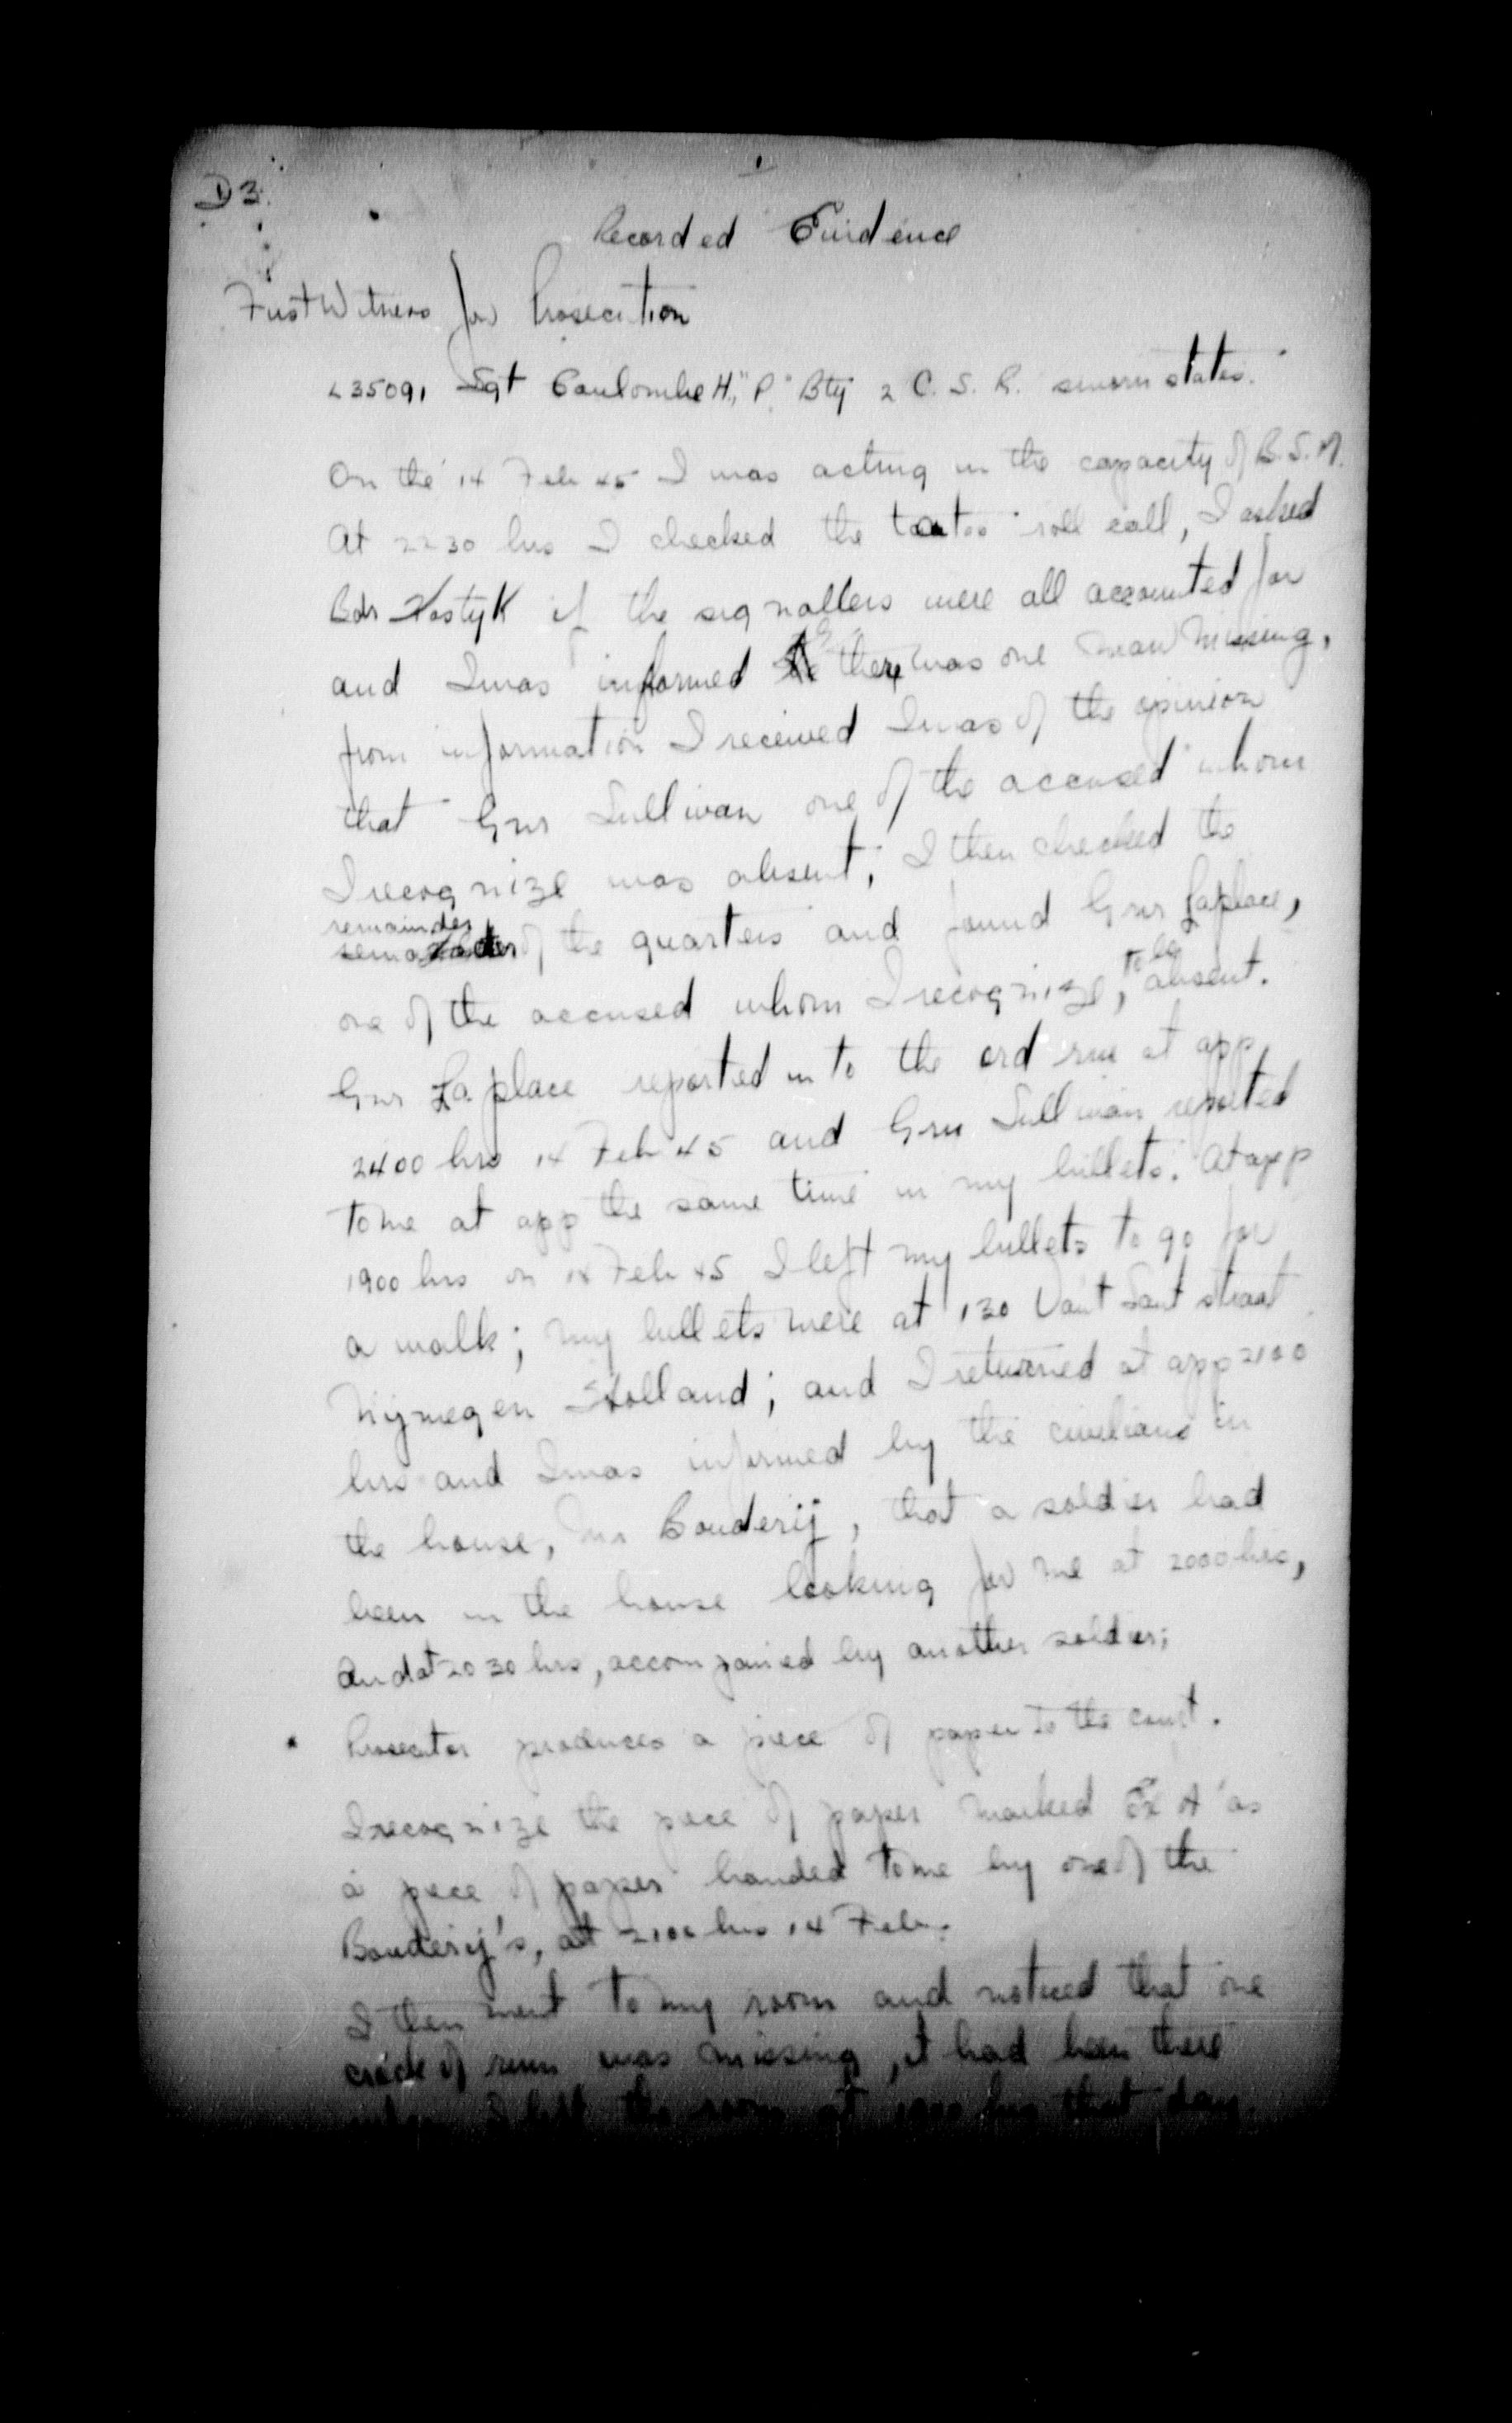 1
D3.
Recorded Evidence
First Witness for Prosecution
L35091 Sgt Coulombe H., "P" Bty 2 C. S. R. sworn states.
On the 14 Feb 45 I was acting in the capacity of B.S.M.
At 2230 hrs I checked the tatoo roll call, I asked
Bdr Kostyk if the signallers were all accounted for
and I was informed there was one man missing,
from information I received I was of the opinion
that Gnr Sullivan one of the accused whom
I recognize was absent; I then checked the
remainder of the quarters and found Gnr Laplace,
one of the accused whom I recognize, to be absent.
Gnr Laplace reported in to the ord rm at app
2400 hrs 14 Feb 45 and Gnr Sullivan reported
to me at app the same time in my billets. At app
1900 hrs on 14 Feb 45 I left my billets to go for
a walk; my billets were at 130 Van't Sant straat
Nijmegen Holland; and I returned at app 2100
hrs and I was informed by the civilians in
the house, Mr Bouderij, that a soldier had
been in the house looking for me at 2000 hrs,
and at 2030 hrs, accompanied by another soldier;
Prosecutor produces a piece of paper to the court.
I recognize the piece of paper marked Ex "A" as
a piece of paper handed to me by one of the
Bouderij's, at 2100 hrs 14 Feb.
I then went to my room and noticed that one
crock of rum was missing, it had been there
when I left the room at 1900 hrs that day.